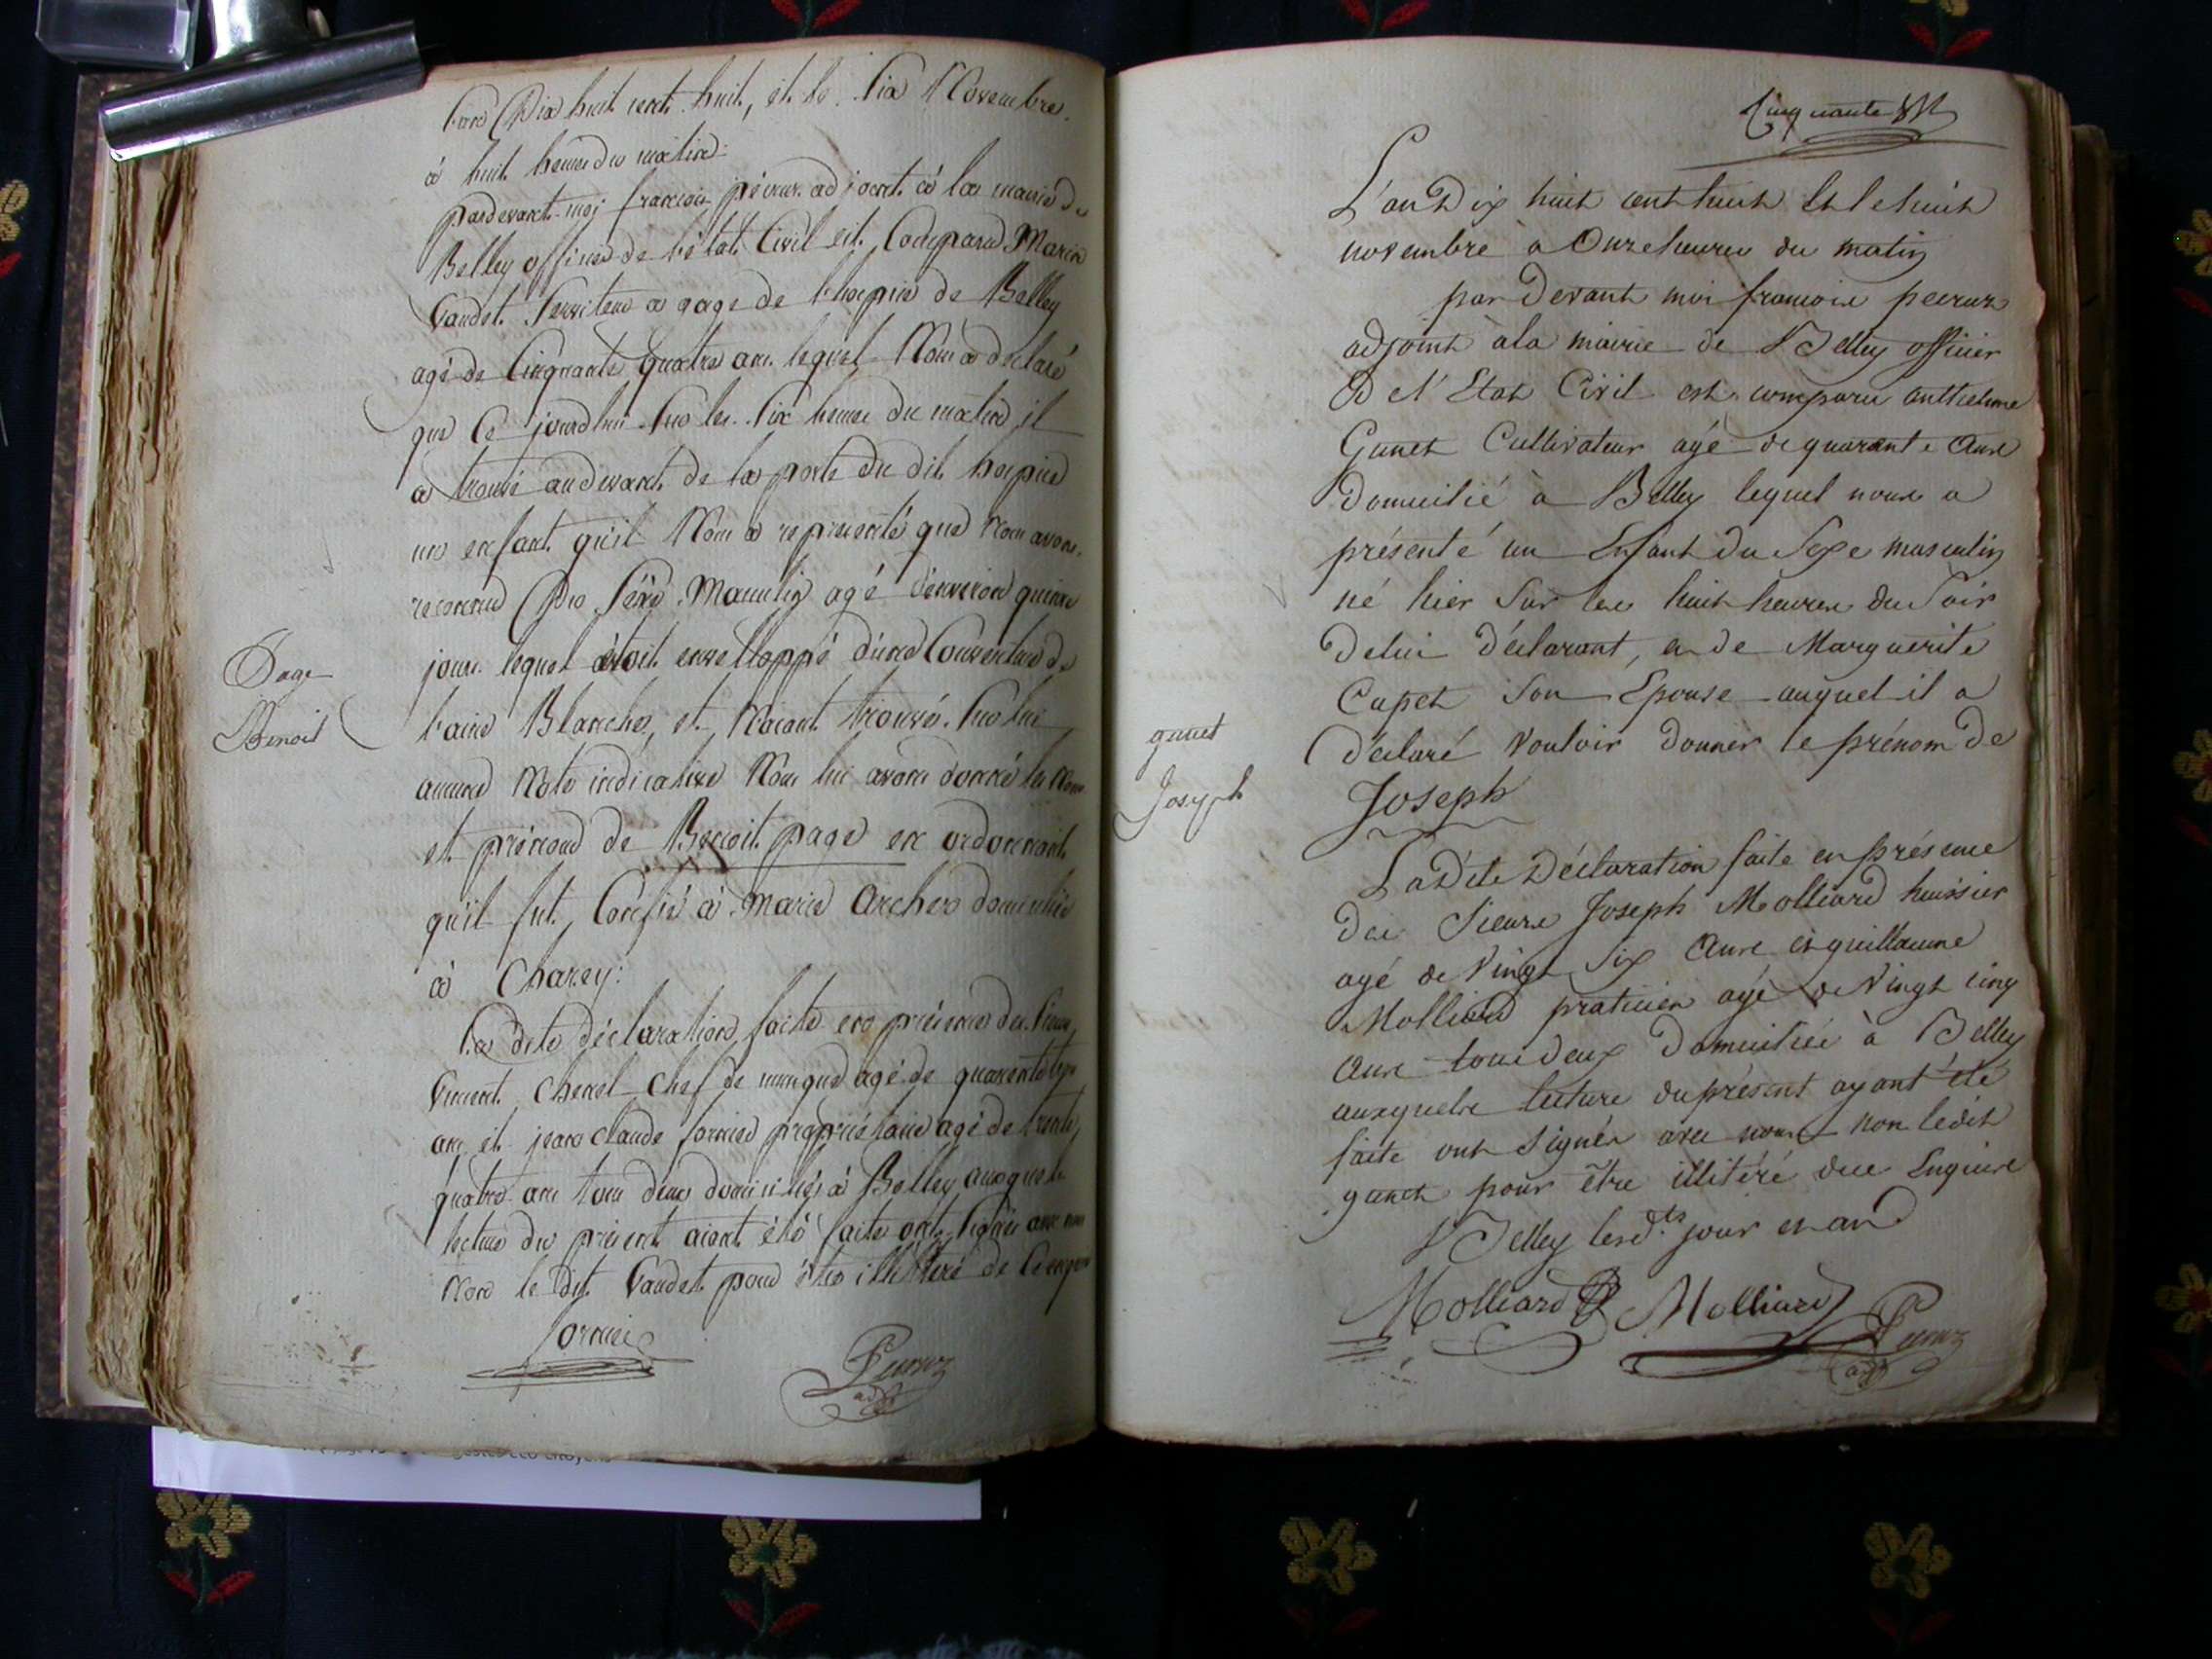 L'an Dix huit cent huit, et le Six Novembre
à huit heures du matin
pardevant moi françois peeruz adjoint à la mairie de
Belley officier de l'état Civil est Comparu Marin
Vaudet Serviteur a gage de l'hospice de Belley
agé de Cinquante quatre ans lequel Nous a déclaré
que Ce jourdhui Sur les Six heures du matin il
a trouvé au devant de la porte du dit hospice
un enfant qu'il Nous a représenté que Nous avons
reconnu Du Sexe Masculin agé d'environ quinze
jours lequel étoit enveloppé d'une Couverture de
laine Blanche, et N'aiant trouvé Sur lui
aucune Note indicative Nous lui avons donné les Noms
et prénoms de Benoit page en ordonnant
qu'il fut Confié à Marie Archer domiciliée
à Chazey
Page
Benoit
La dite déclaration faite en présence des Sieurs
Vincent Chenel Chef de agé de quarante
ans et jean claude fornier propriétaire agé de trente
quatre ans tous deux domiciliés à Belley auxquels
lecture du présent aiant été faite ont Signés avec nous
Non le dit Vaudet pour être illittéré de Ce enquis
fornier
Peeruz
adjt
Cinquante
L'an Dix huit cent huit Et le huit
novembre à Onze heures du matin
par Devant moi françois peeruz
adjoint à la mairie de Belley officier
De l'Etat Civil est comparu anthelme
Gunet Cultivateur agé de quarante Ans
Domicilié à Belley lequel nous a
présenté un Enfant du Sexe masculin
né hier Sur les huit heures du Soir
De lui Déclarant, et de Marguerite
Capet Son Epouse auquel il a
Déclaré Vouloir Donner le prénom De
Joseph
gunet
Joseph
La Dite Déclaration faite en présence
Des Sieurs Joseph Molliard huissier
agé de Vingt Six Ans et guillaume
Molliard praticien agé de Vingt cinq
Ans tous Deux Domiciliés à Belley
auxquels lecture du présent ayant été
faite ont Signés avec nous non ledit
gunet pour être illitéré de ce Enquis
Belley lesd.ts jour et an
Molliard Molliard Peeruz
adjt